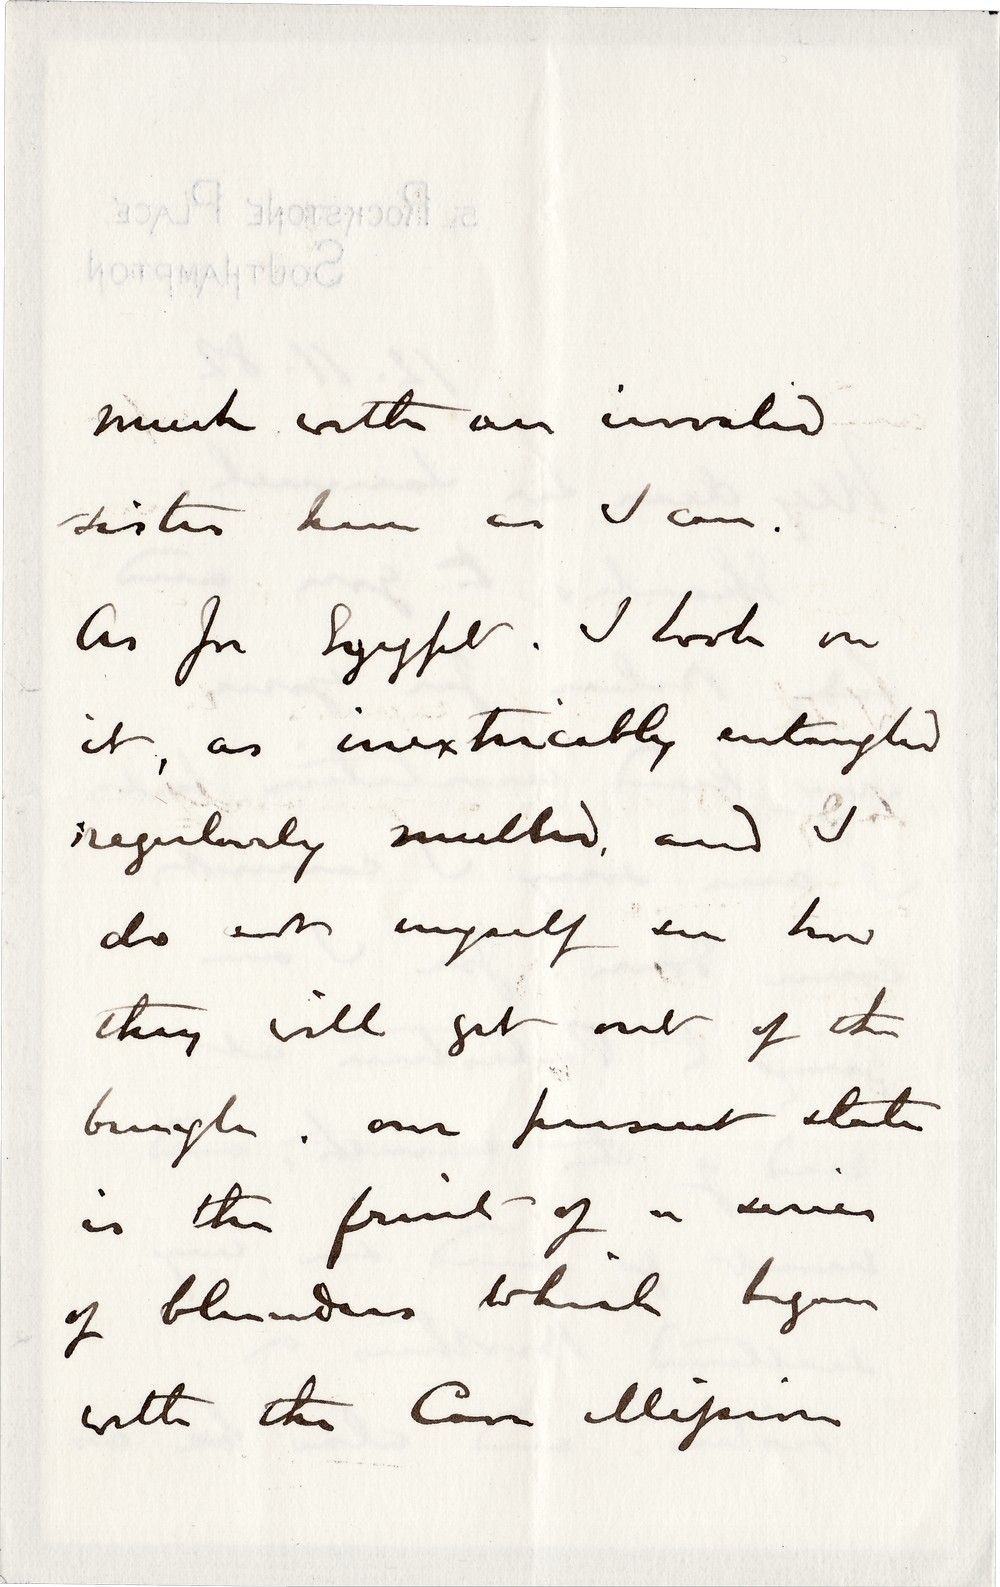 5. Rockstone Place
Southampton
11. 11. 82
much with an invalid
sister here as I can.
As for Egypt. I look on
it, as inextricably entangled
regularly mulled, and I
do not myself see how
they will get out of the
bungle. our present state
is the fruit of a series
of blunders which began
with the Cave Mission